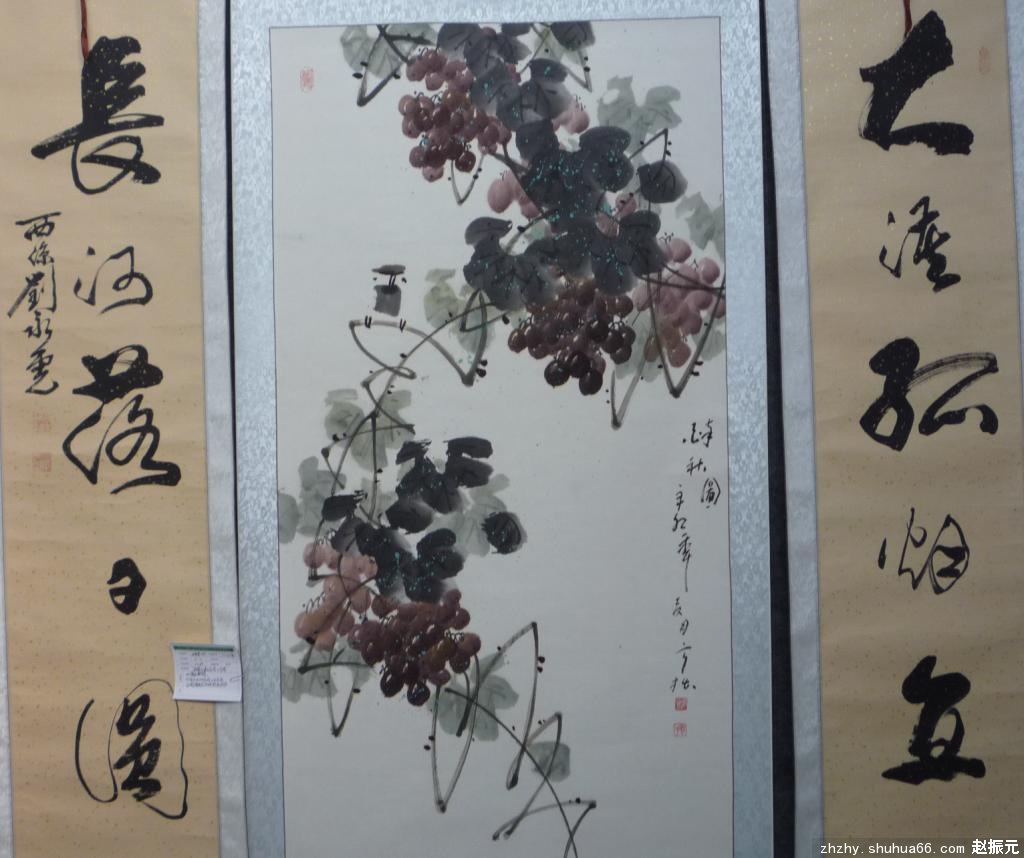 大漠孤烟直
長河落日圓
西條劉永
秋圖
辛卯年夏月
zhzhy.shuhua66.com 赵振元